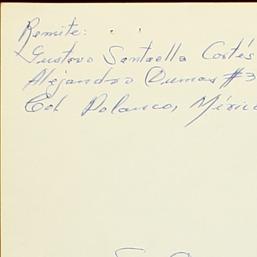 Remite:
Gustavo Santaella Cortés
Alejandro Dumas #3
Col. Polanco, México